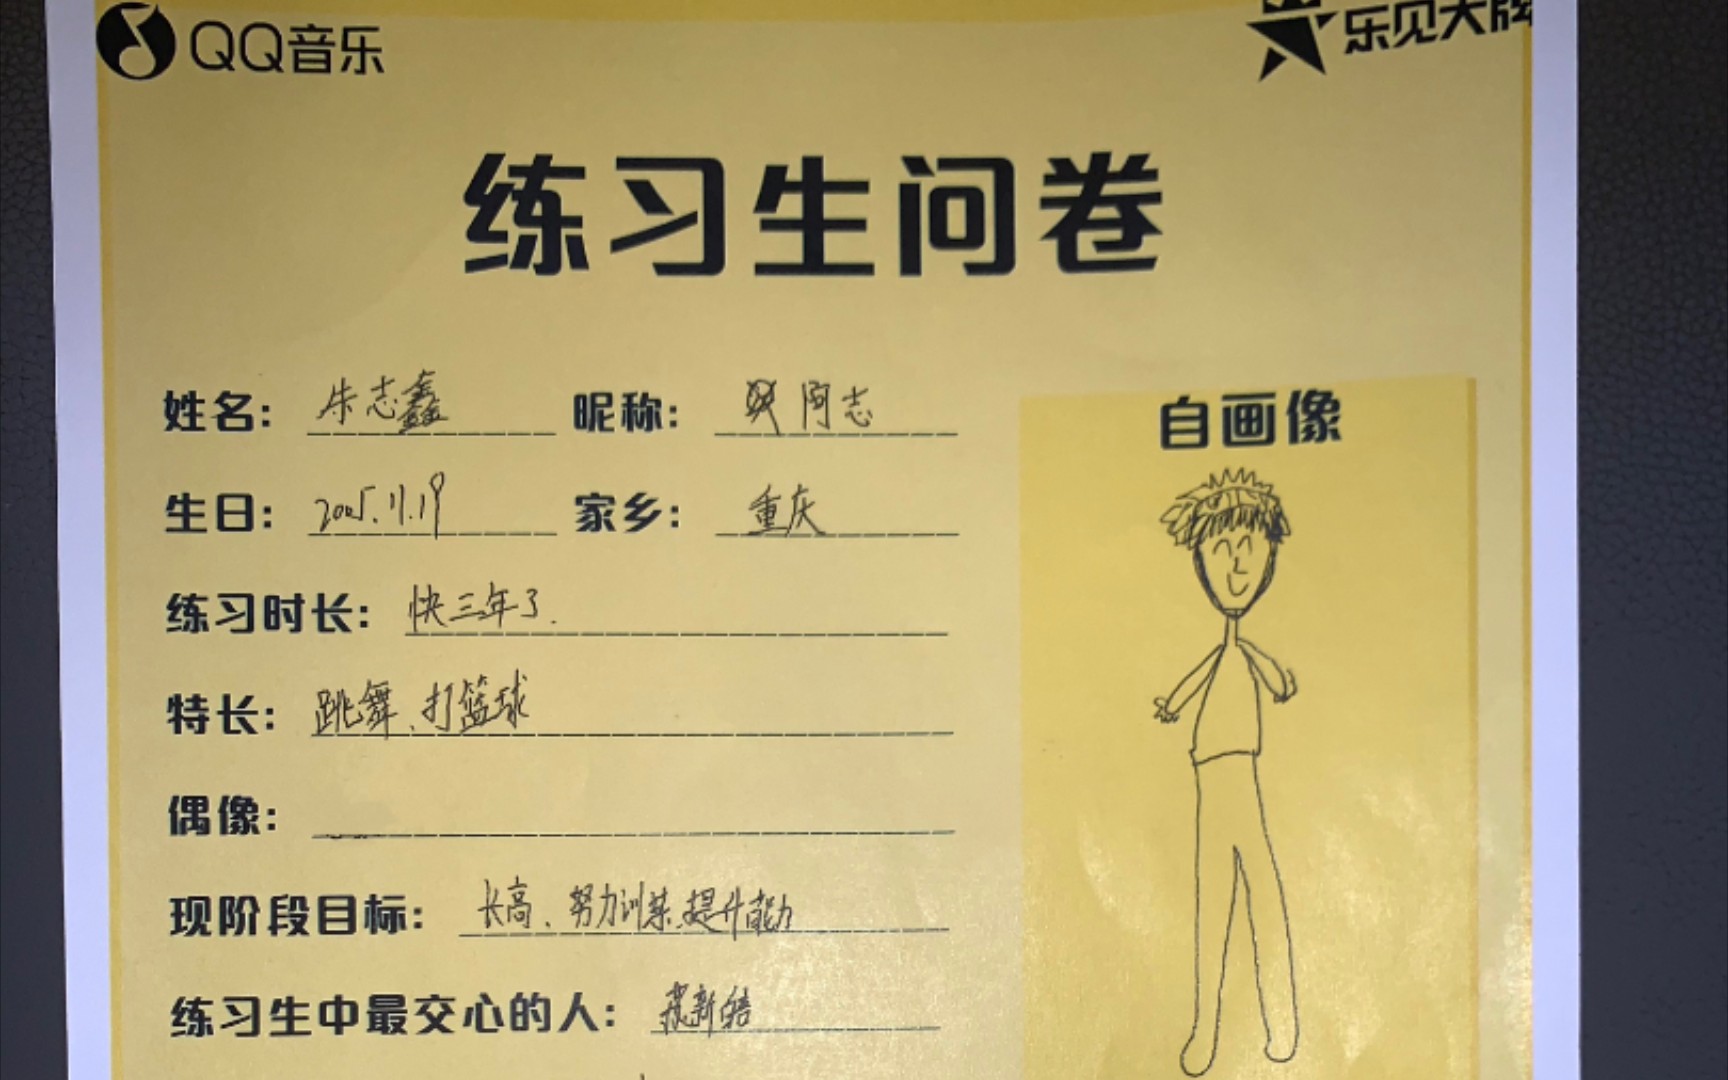 QQ音乐 乐见大牌
练习生问卷
姓名: 朱志鑫 昵称: 阿志
自画像
生日: 2005.11.19 家乡: 重庆
练习时长: 快三年了.
特长: 跳舞、打篮球
偶像:
现阶段目标: 长高、努力训练、提升能力
练习生中最交心的人: 苏新皓